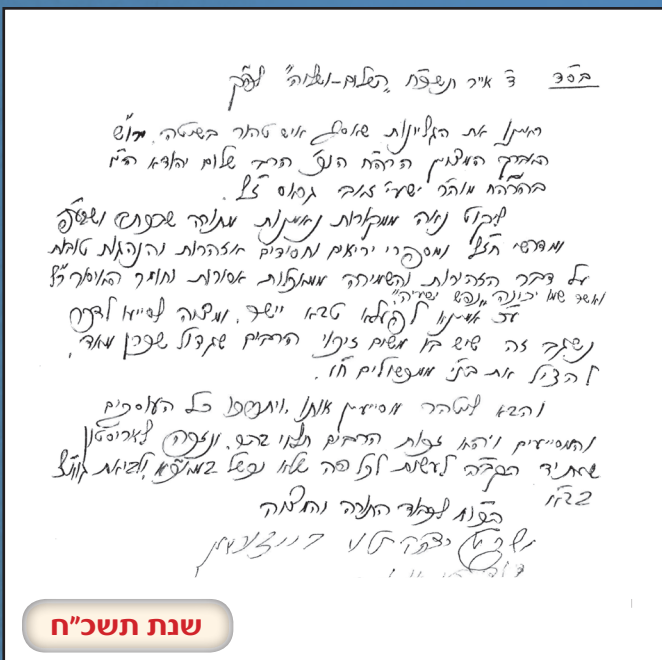 בס״ד ד׳ אייר תשכ״ח "השלום-ושלוה" לפ״ק
ראיתי את הגליונות שאסף איש טהור בשיטה
האברך המצוין הרה״ח הנפ׳ הרב שלום יהודא הי״ו
בהרה״ח מוה״ר ישעי׳ זאב גראס ז״ל.
ליקוט נאה ממקורות נאמנות מתורה שבכתב ושבע״פ
ומדרשי חז״ל ומספרי יריאים וחסידים אזהרות והנהגות טובות
על דבר הזהירות והשמירה ממאכלות אסורות וחומר האיסור ר״ל
ואשר שמו יכונה "נפש ישעיה"
ע״כ אמינא לפעלא טבא יישר, ומצוה לסייעו לדבר
נשגב זה שיש בו משום זיכוי הרבים שגדול שכרן מאד,
להציל את בנ״י ממכשולים ח״ו.
והבא לטהר מסייעין אותו, ויתברכו כל העוסקים
והמסייעים ויהא זכות הרבים תלוי בהם, ונזכה לאריסטון
שעתיד הקב״ה לעשות לכל מי שלא נכשל במאכ״א, ולביאת גוא״צ
בב״א
הכו״ח לכבוד התורה והמצוה
יצחק
שנת תשכ״ח